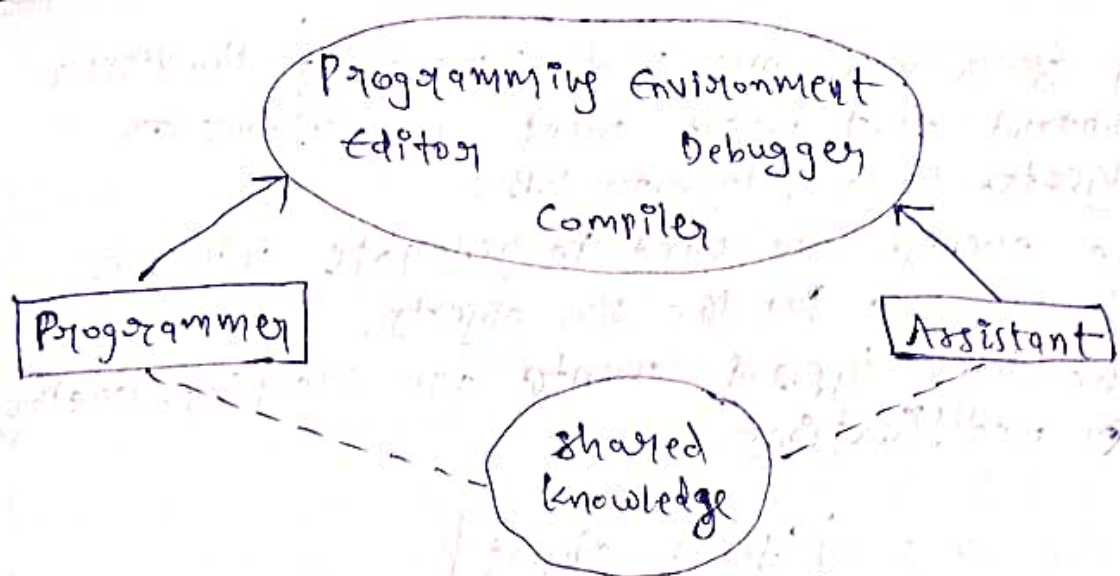 Programming Environment
Editor Debugger
Compiler
Programmer
Assistant
shared
knowledge